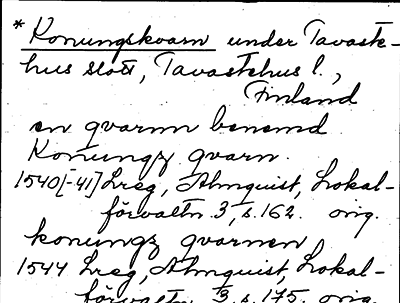 * Konungskvarn under Tavaste-
hus slott, Tavastehus l.,
Finland
en qvarnn benemd
Konungz qvarn.
1540[-41] Lreg, Almquist, Lokal-
förvaltn 3, s. 162. orig.
konungz qvarnen
1544 Lreg, Almquist, Lokal-
förvaltn 3, s. 175. orig.